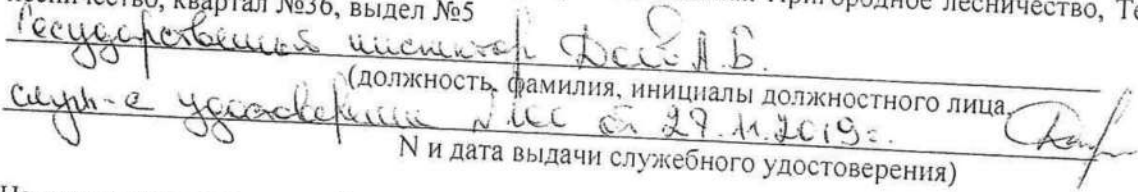 лесничество, квартал №36, выдел №5 Пригородное лесничество,
Государственный инспектор А.Б.
(должность, фамилия, инициалы должностного лица,
удостоверение от 27.11.2019г.
N и дата выдачи служебного удостоверения)